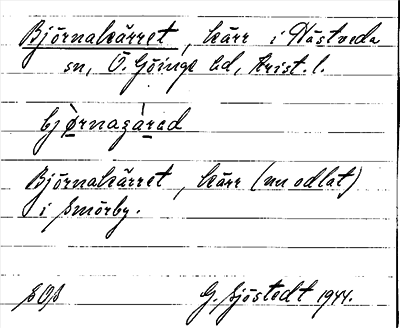 Björnakärret, kärr i Hästveda
sn, Ö. Göinge hd, Krist. l.
bjø̀rnazàrəd
Björnakärret, kärr (nu odlat)
i Smörby.
SOS G. Sjöstedt 1944.